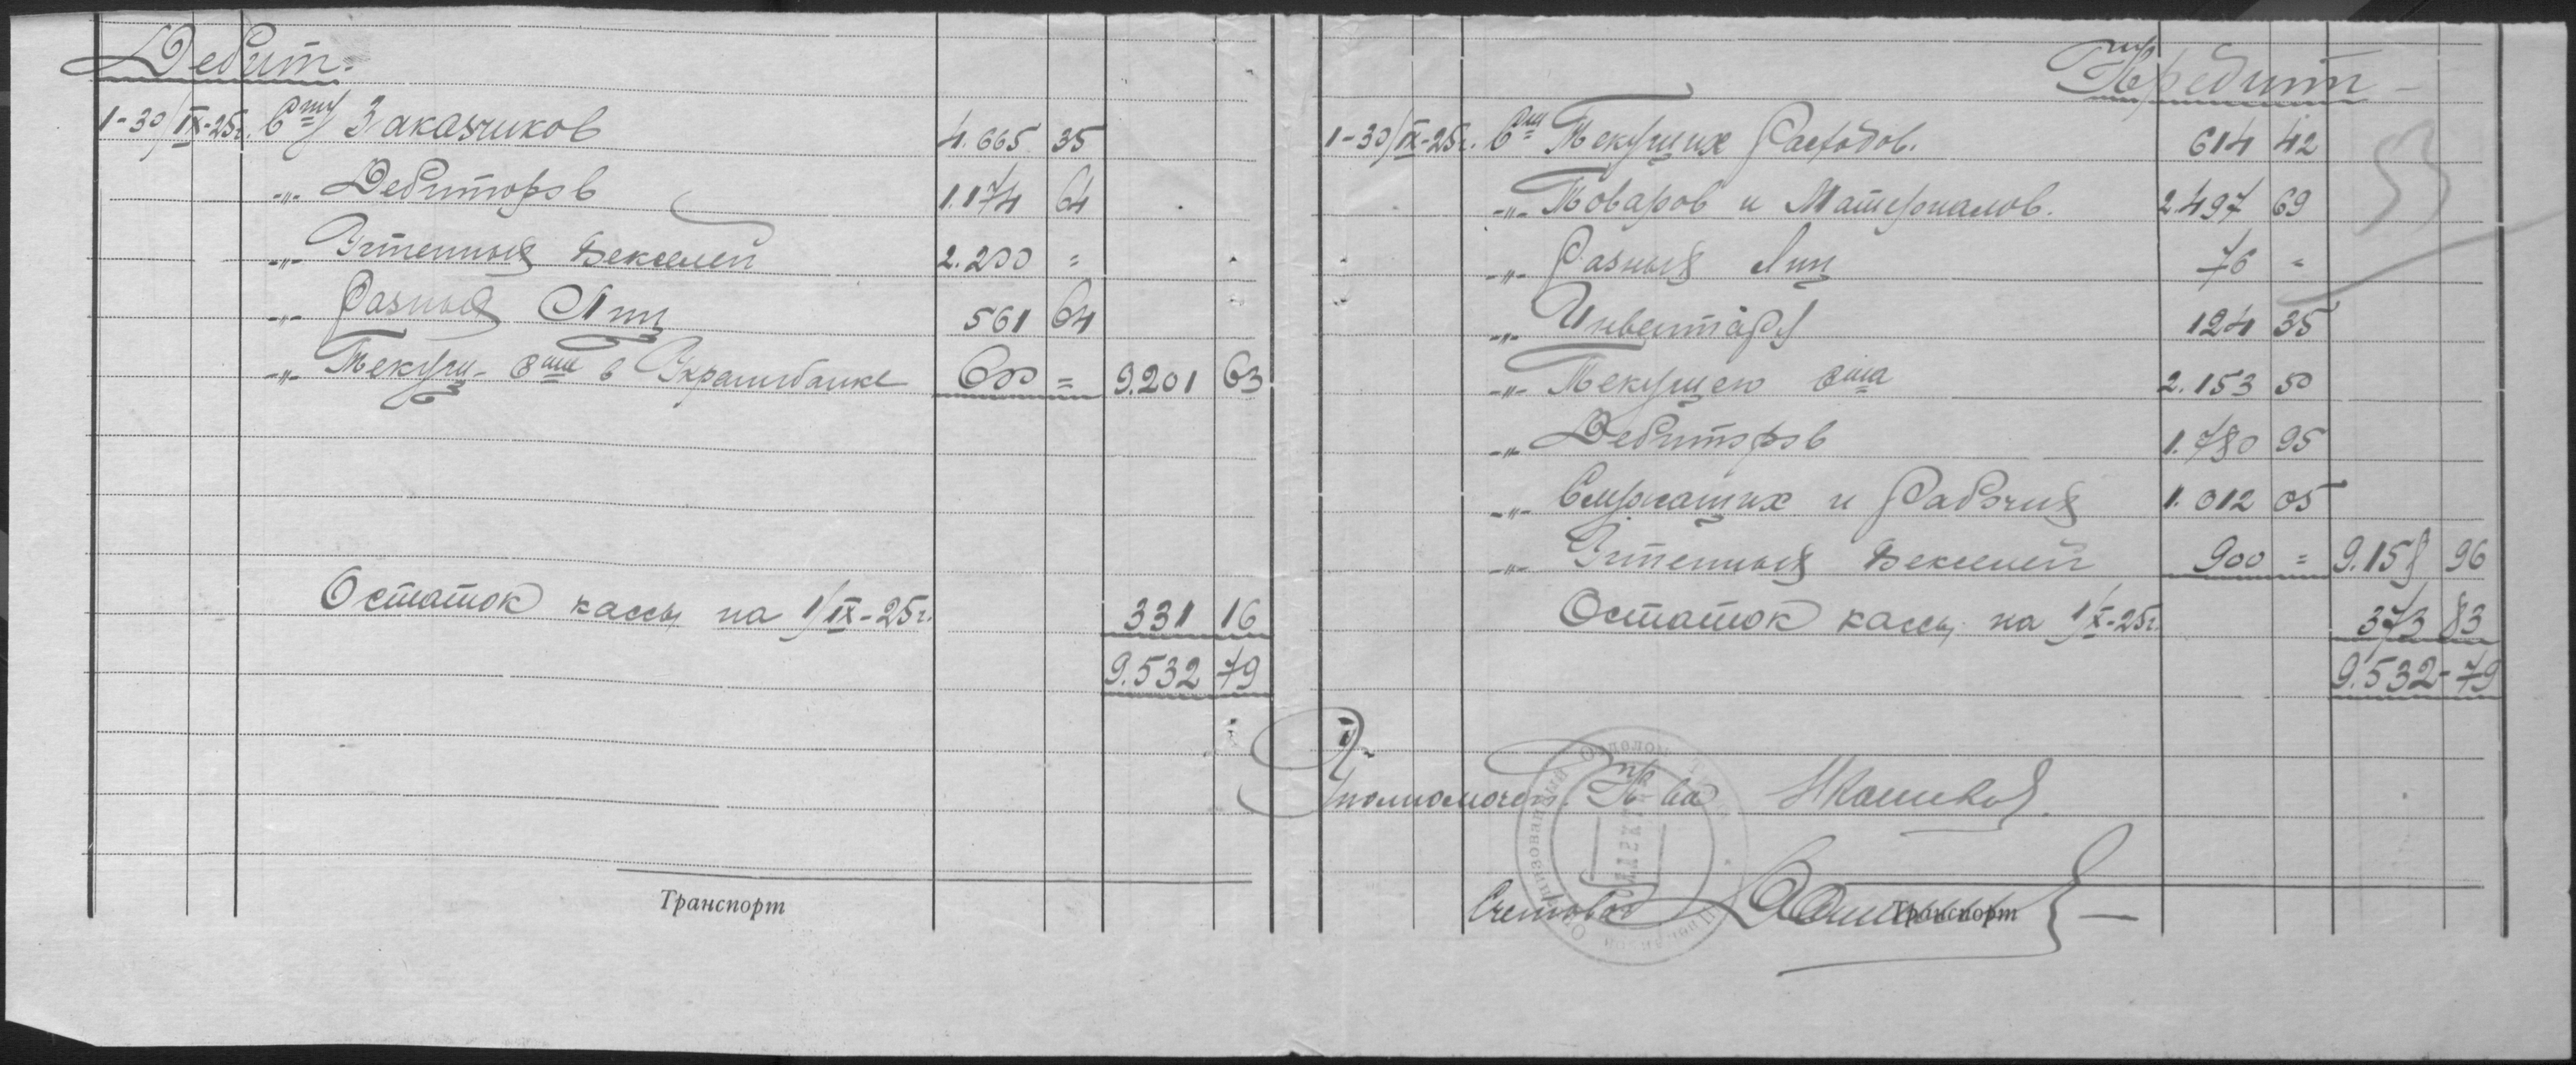 Дебит.
1-30/IX-25г. Счту Заказчиков 4.665 35
-"- Дебиторов 1.174 64
-"- Учтенных Векселей 2.200 =
-"- Разных Лиц 561 64
-"- Текущ- счт в Украинбанке 600 = 9.201 63
Остаток кассы на 1/IX-25г. 331 16
9.532 79
Транспорт
Кредит
53
1-30/IX-25г. Счт Текущих Расходов. 614 42
-"- Товаров и Материалов. 2.497 69
-"- Разных Лиц 76 =
-"- Инвентаря 124 35
-"- Текущего счта 2.153 50
-"- Дебиторов 1.780 95
-"- Служащих и Рабочих 1.012 05
-"- Учтенных Векселей 900 = 9.158 96
Остаток кассы на 1/X-25г. 373 83
9.532-79
Уполномочен.
Счетовод
Транспорт